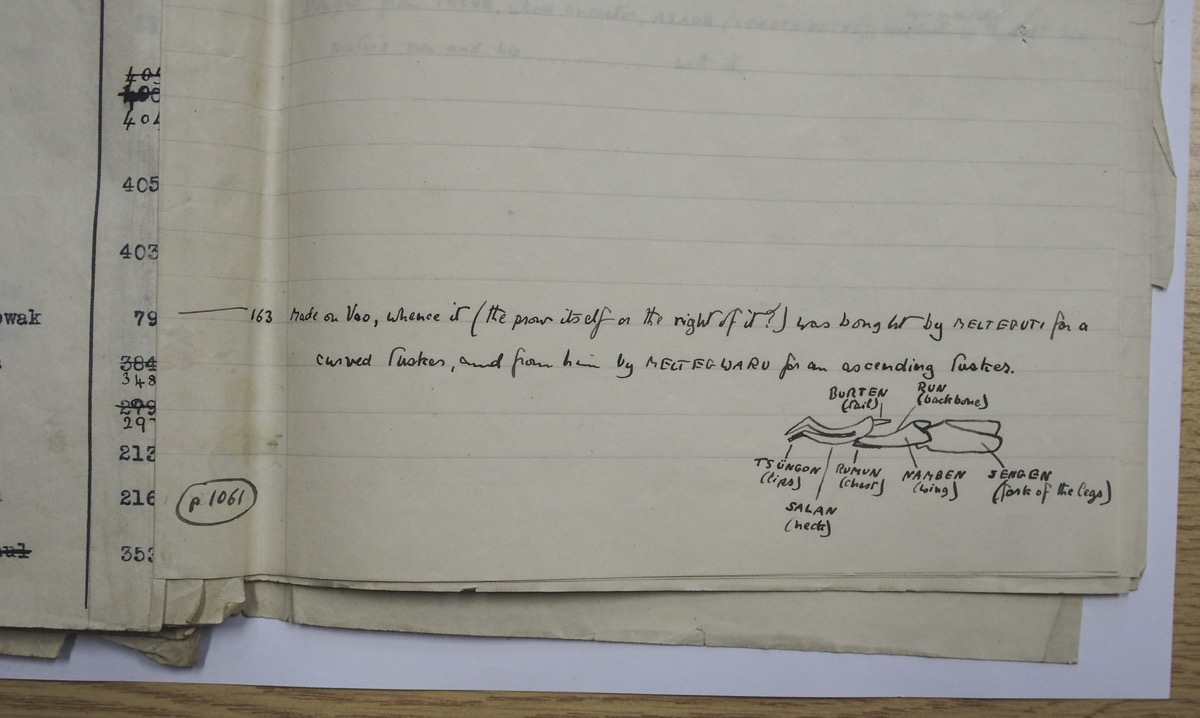 405
403
owak 79
163 Made on Vao, whence it (the prow itself or the right of it?) was bought by MELTEGUTI for a
curved Tusker, and from him by MELTEGWARU for an ascending Tusker.
384
348
299
297
BURTEN
(tail)
RUN
(backbone)
213
TSÜNGON
(lips)
RUMUN
(chest)
NAMBEN
(wing)
SENGEN
(fork of the legs)
216
p. 1061
SALAN
(neck)
353